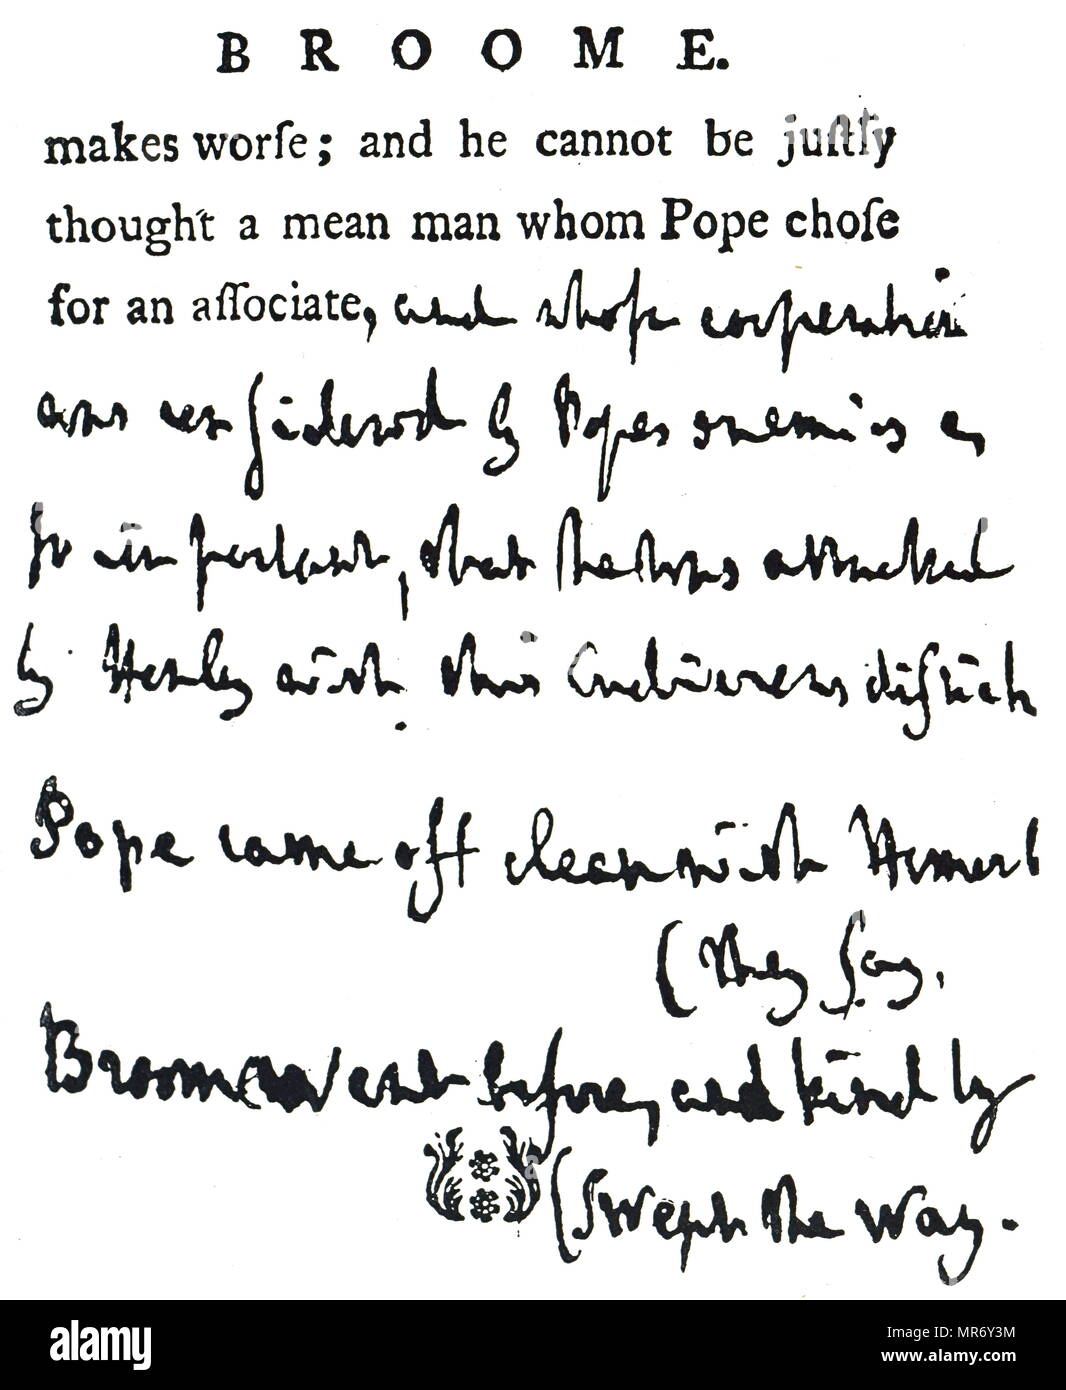 B R O O M E.
makes worſe; and he cannot be juſtly
thought a mean man whom Pope choſe
for an aſſociate, and whoſe cooperation
was conſidered by Popes enemies as
ſo important, that he was attacked
by Henley with this ludicrous diſtich
Pope came off clean with Homer
(they ſay,
Broome went before, and kindly
(Swept the Way.
a
alamy
Image ID: MR6Y3M
www.alamy.com